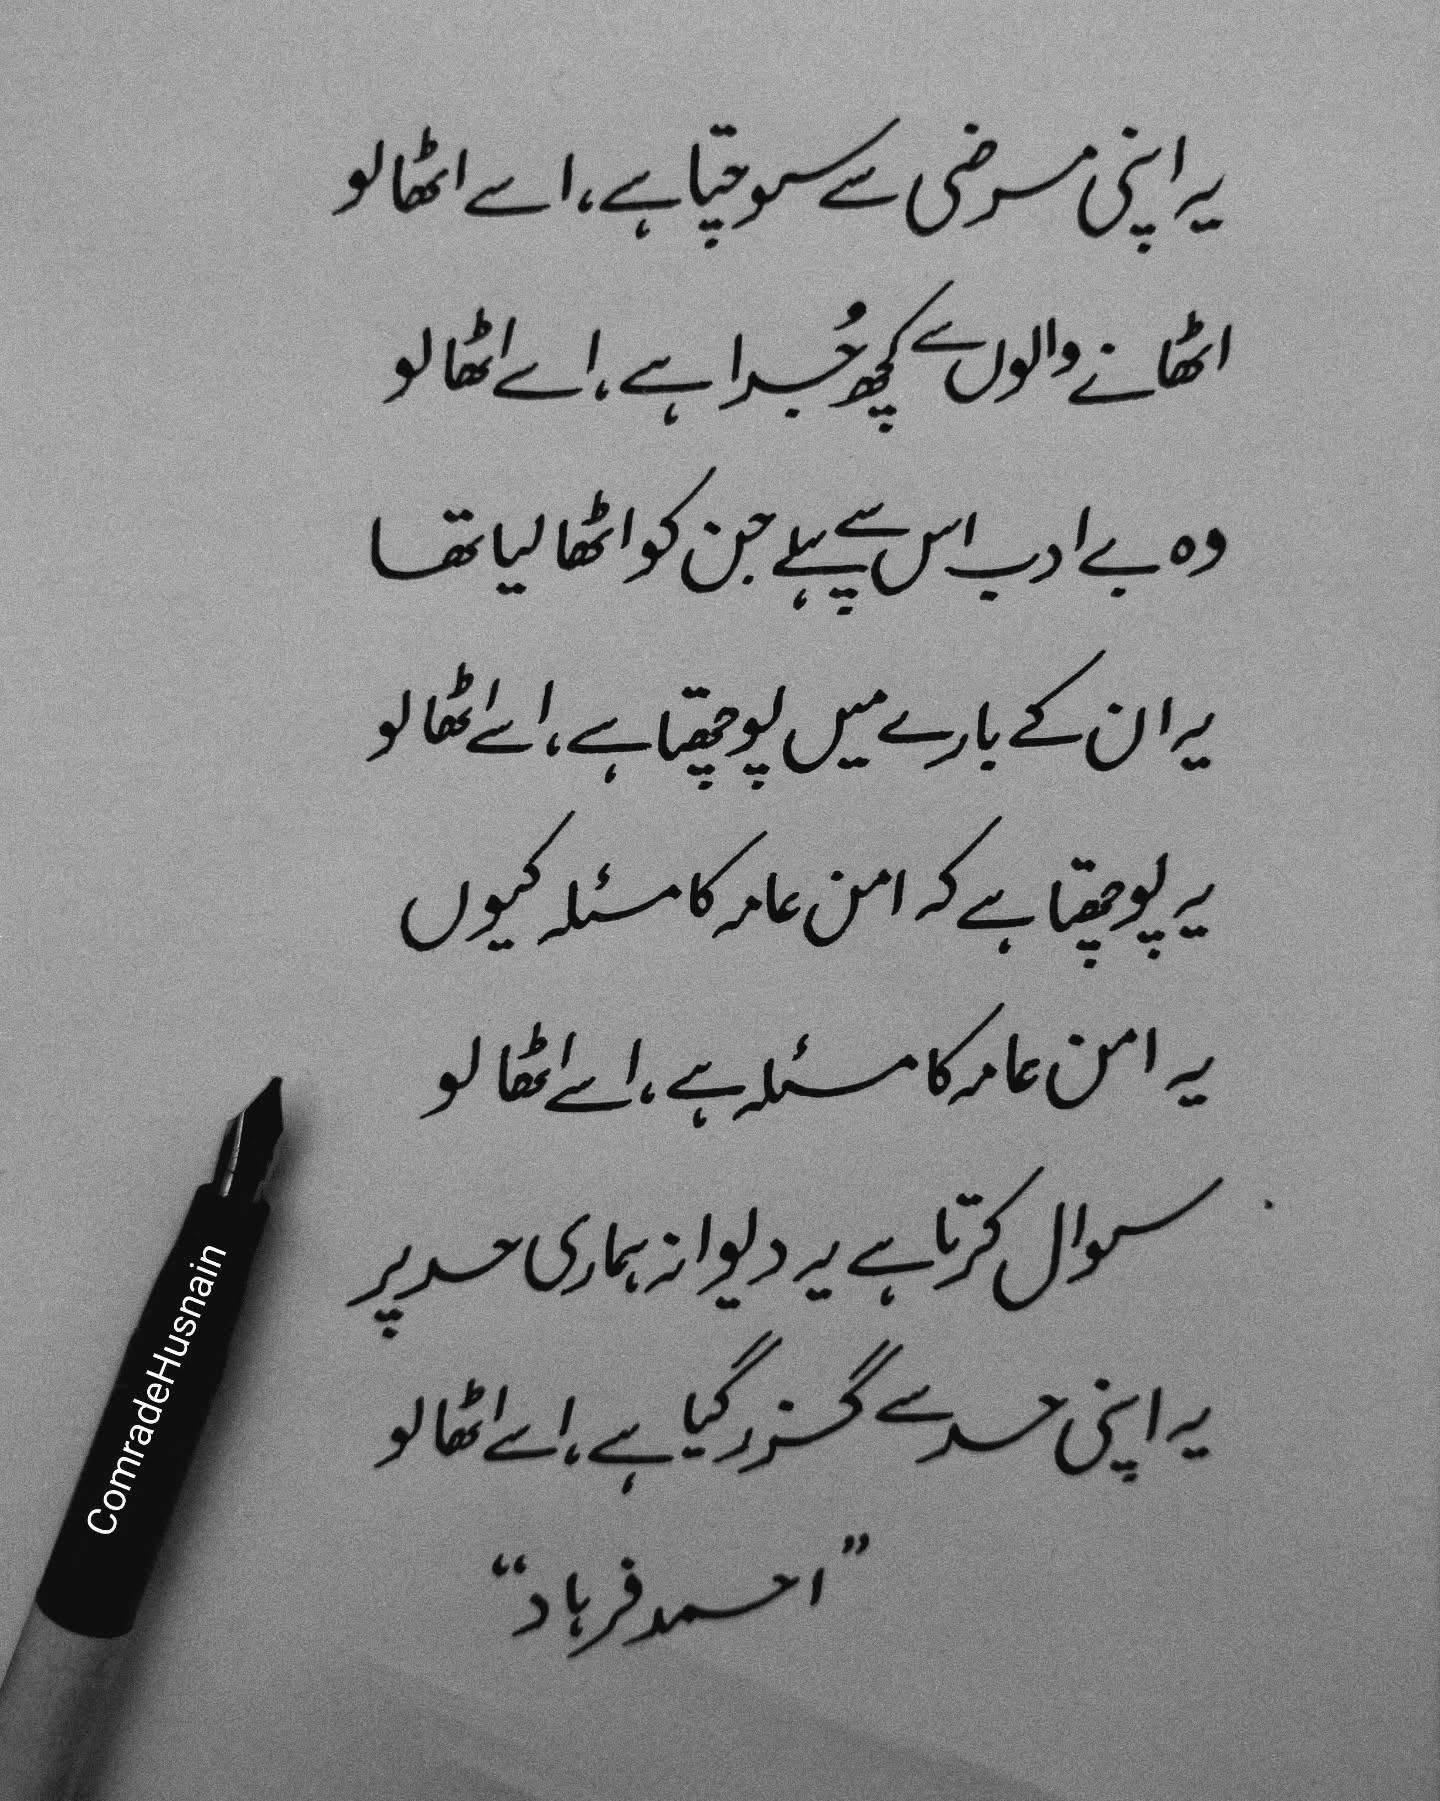 یہ اپنی مرضی سے سوچتا ہے، اسے اٹھا لو
اٹھانے والوں سے کچھ جُدا ہے، اسے اٹھا لو
وہ بے ادب اس سے پہلے جن کو اٹھا لیا تھا
یہ ان کے بارے میں پوچھتا ہے، اسے اٹھا لو
یہ پوچھتا ہے کہ امن عامہ کا مسئلہ کیوں
یہ امن عامہ کا مسئلہ ہے، اسے اٹھا لو
سوال کرتا ہے یہ دیوانہ ہماری حد پر
یہ اپنی حد سے گزر گیا ہے، اسے اٹھا لو
”احمد فرہاد“
ComradeHusnain